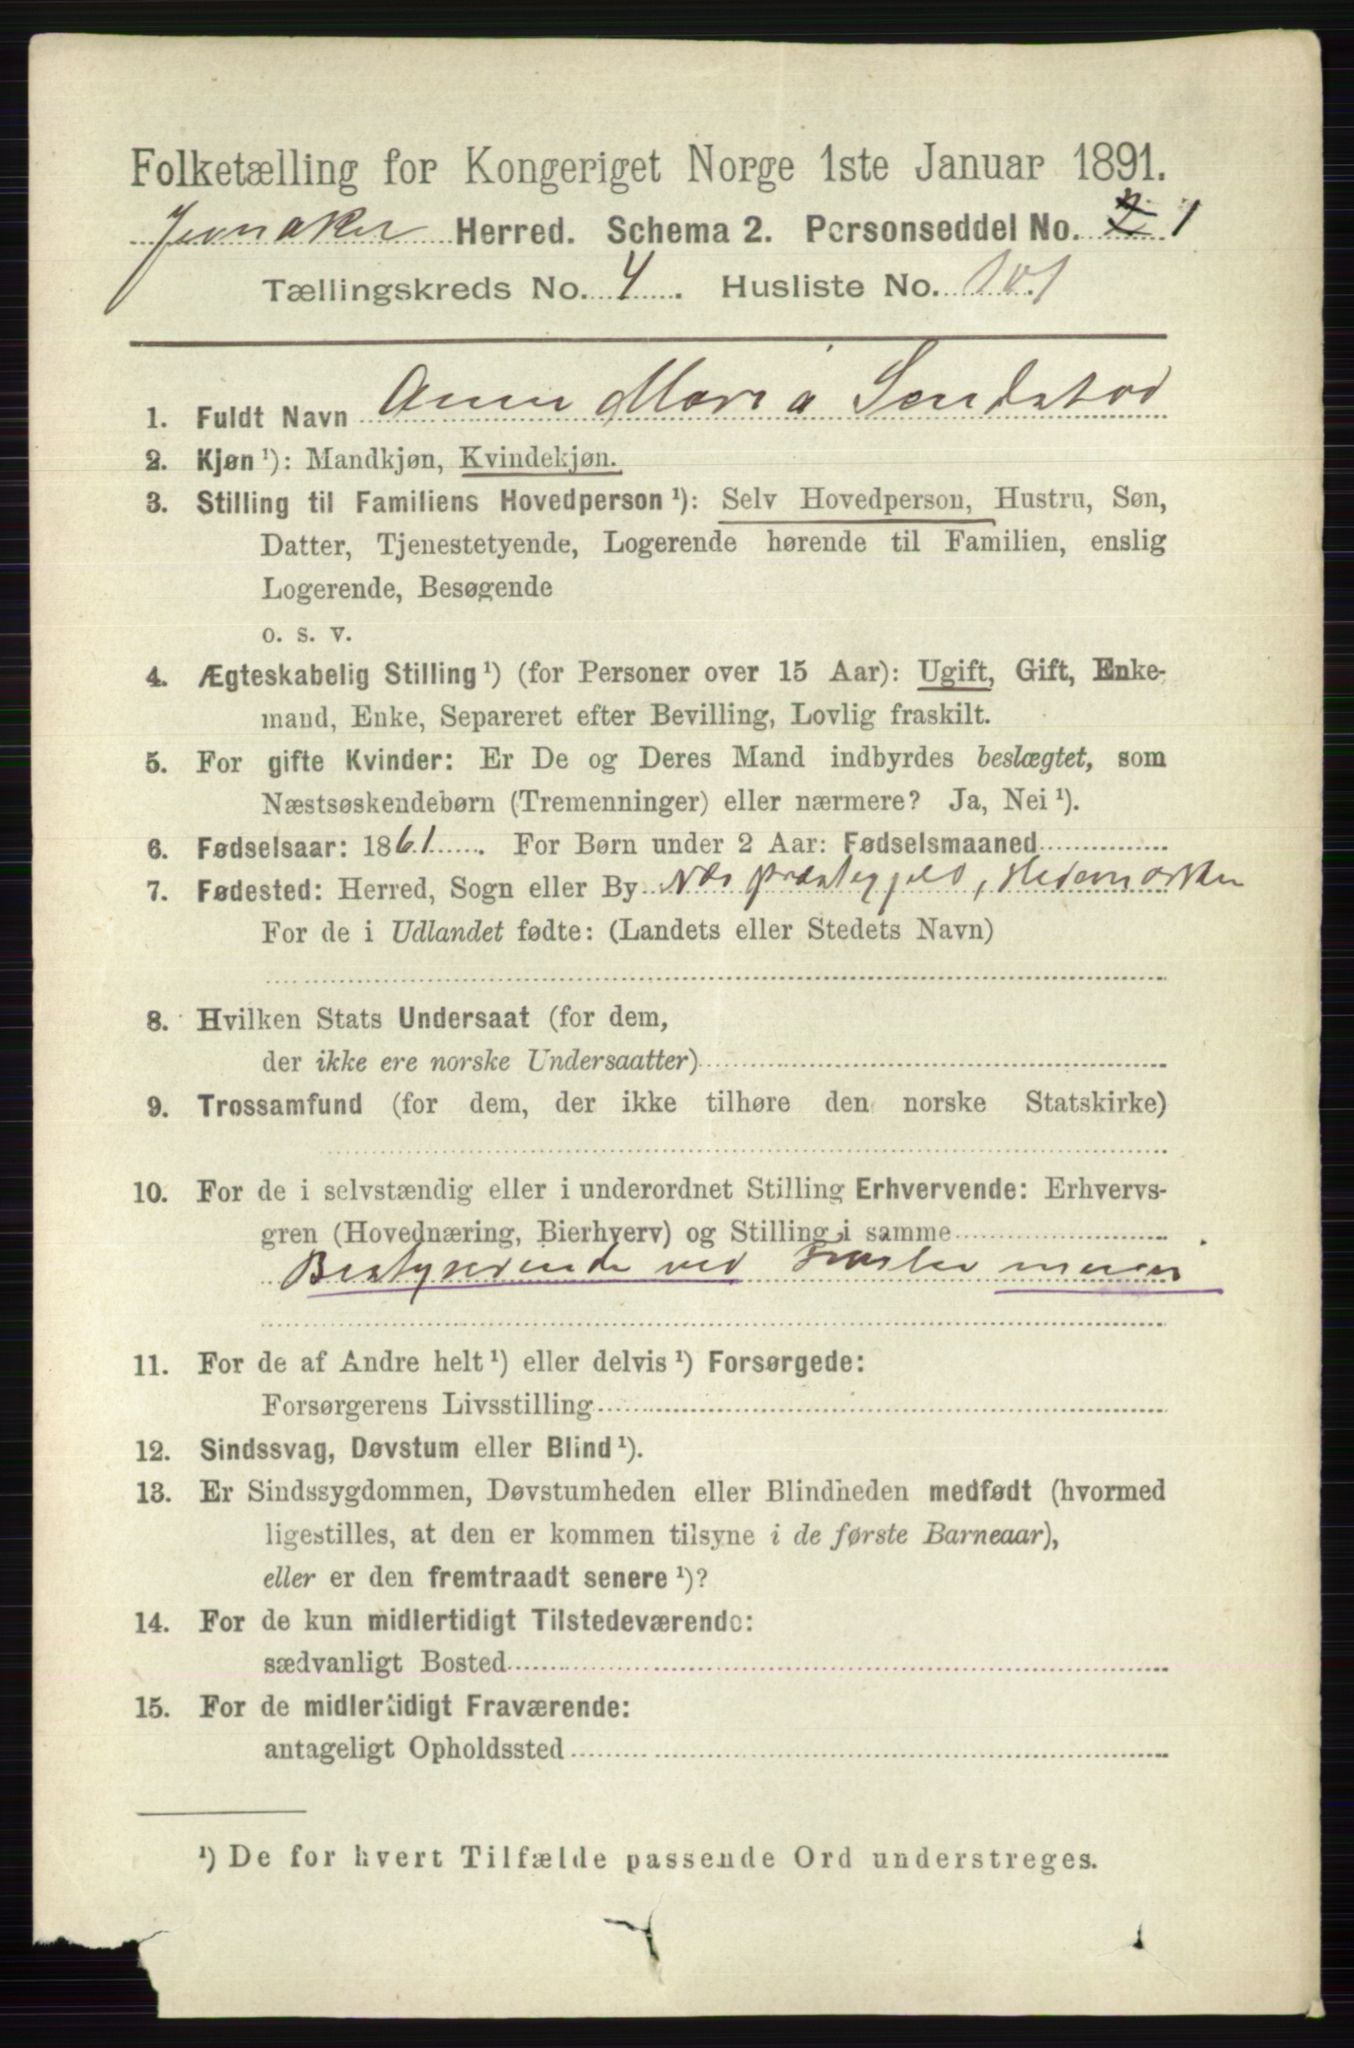 Folketælling for Kongeriget Norge 1ste Januar 1891.
Jevnaker Herred. Schema 2. Personseddel No. 1
Tællingskreds No. 4. Husliste No. 101
1. Fuldt Navn Anne Maria Sendstad
2. Kjøn ¹): Mandkjøn, Kvindekjøn.
3. Stilling til Familiens Hovedperson ¹): Selv Hovedperson, Hustru, Søn,
Datter, Tjenestetyende, Logerende hørende til Familien, enslig
Logerende, Besøgende
o. s. v.
4. Ægteskabelig Stilling ¹) (for Personer over 15 Aar): Ugift, Gift, Enke-
mand, Enke, Separeret efter Bevilling, Lovlig fraskilt.
5. For gifte Kvinder: Er De og Deres Mand indbyrdes beslægtet, som
Næstsøskendebørn (Tremenninger) eller nærmere? Ja, Nei ¹).
6. Fødselsaar: 1861. For Børn under 2 Aar: Fødselsmaaned
7. Fødested: Herred, Sogn eller By Næs præstegjeld, Hedemarken
For de i Udlandet fødte: (Landets eller Stedets Navn)
8. Hvilken Stats Undersaat (for dem,
der ikke ere norske Undersaatter)
9. Trossamfund (for dem, der ikke tilhøre den norske Statskirke)
10. For de i selvstændig eller i underordnet Stilling Erhvervende: Erhvervs-
gren (Hovednæring, Bierhverv) og Stilling i samme
Bestyrerinde ved meieri
11. For de af Andre helt ¹) eller delvis ¹) Forsørgede:
Forsørgerens Livsstilling
12. Sindssvag, Døvstum eller Blind ¹).
13. Er Sindssygdommen, Døvstumheden eller Blindheden medfødt (hvormed
ligestilles, at den er kommen tilsyne i de første Barneaar),
eller er den fremtraadt senere ¹)?
14. For de kun midlertidigt Tilstedeværende:
sædvanligt Bosted
15. For de midlertidigt Fraværende:
antageligt Opholdssted
¹) De for hvert Tilfælde passende Ord understreges.